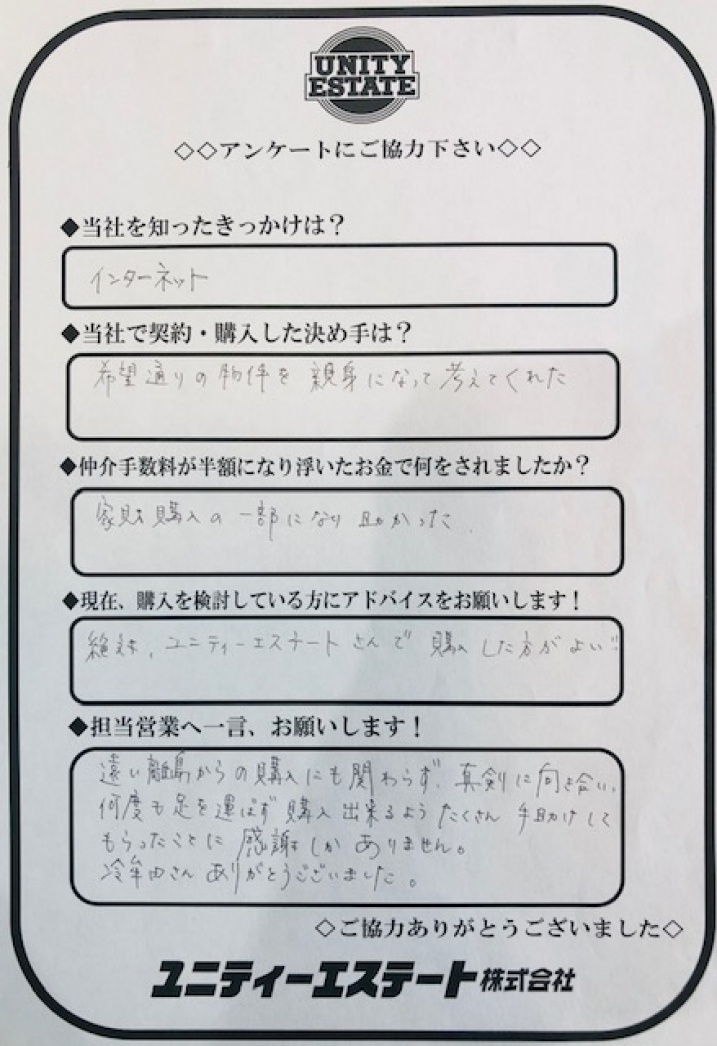 UNITY
ESTATE
◇◇アンケートにご協力下さい◇◇
◆当社を知ったきっかけは？
インターネット
◆当社で契約・購入した決め手は？
希望通りの物件を 親身になって考えてくれた
◆仲介手数料が半額になり浮いたお金で何をされましたか？
家財購入の一部になり 助かった.
◆現在、購入を検討している方にアドバイスをお願いします！
絶対、ユニティーエステートさんで 購入した方がよい!!
◆担当営業へ一言、お願いします！
遠い離島からの購入にも関わらず、真剣に向き合い、
何度も足を運ばず購入出来るよう たくさん 手助けして
もらったことに 感謝しかありません。
冷牟田さん ありがとうございました。
◇ご協力ありがとうございました◇
ユニティーエステート株式会社